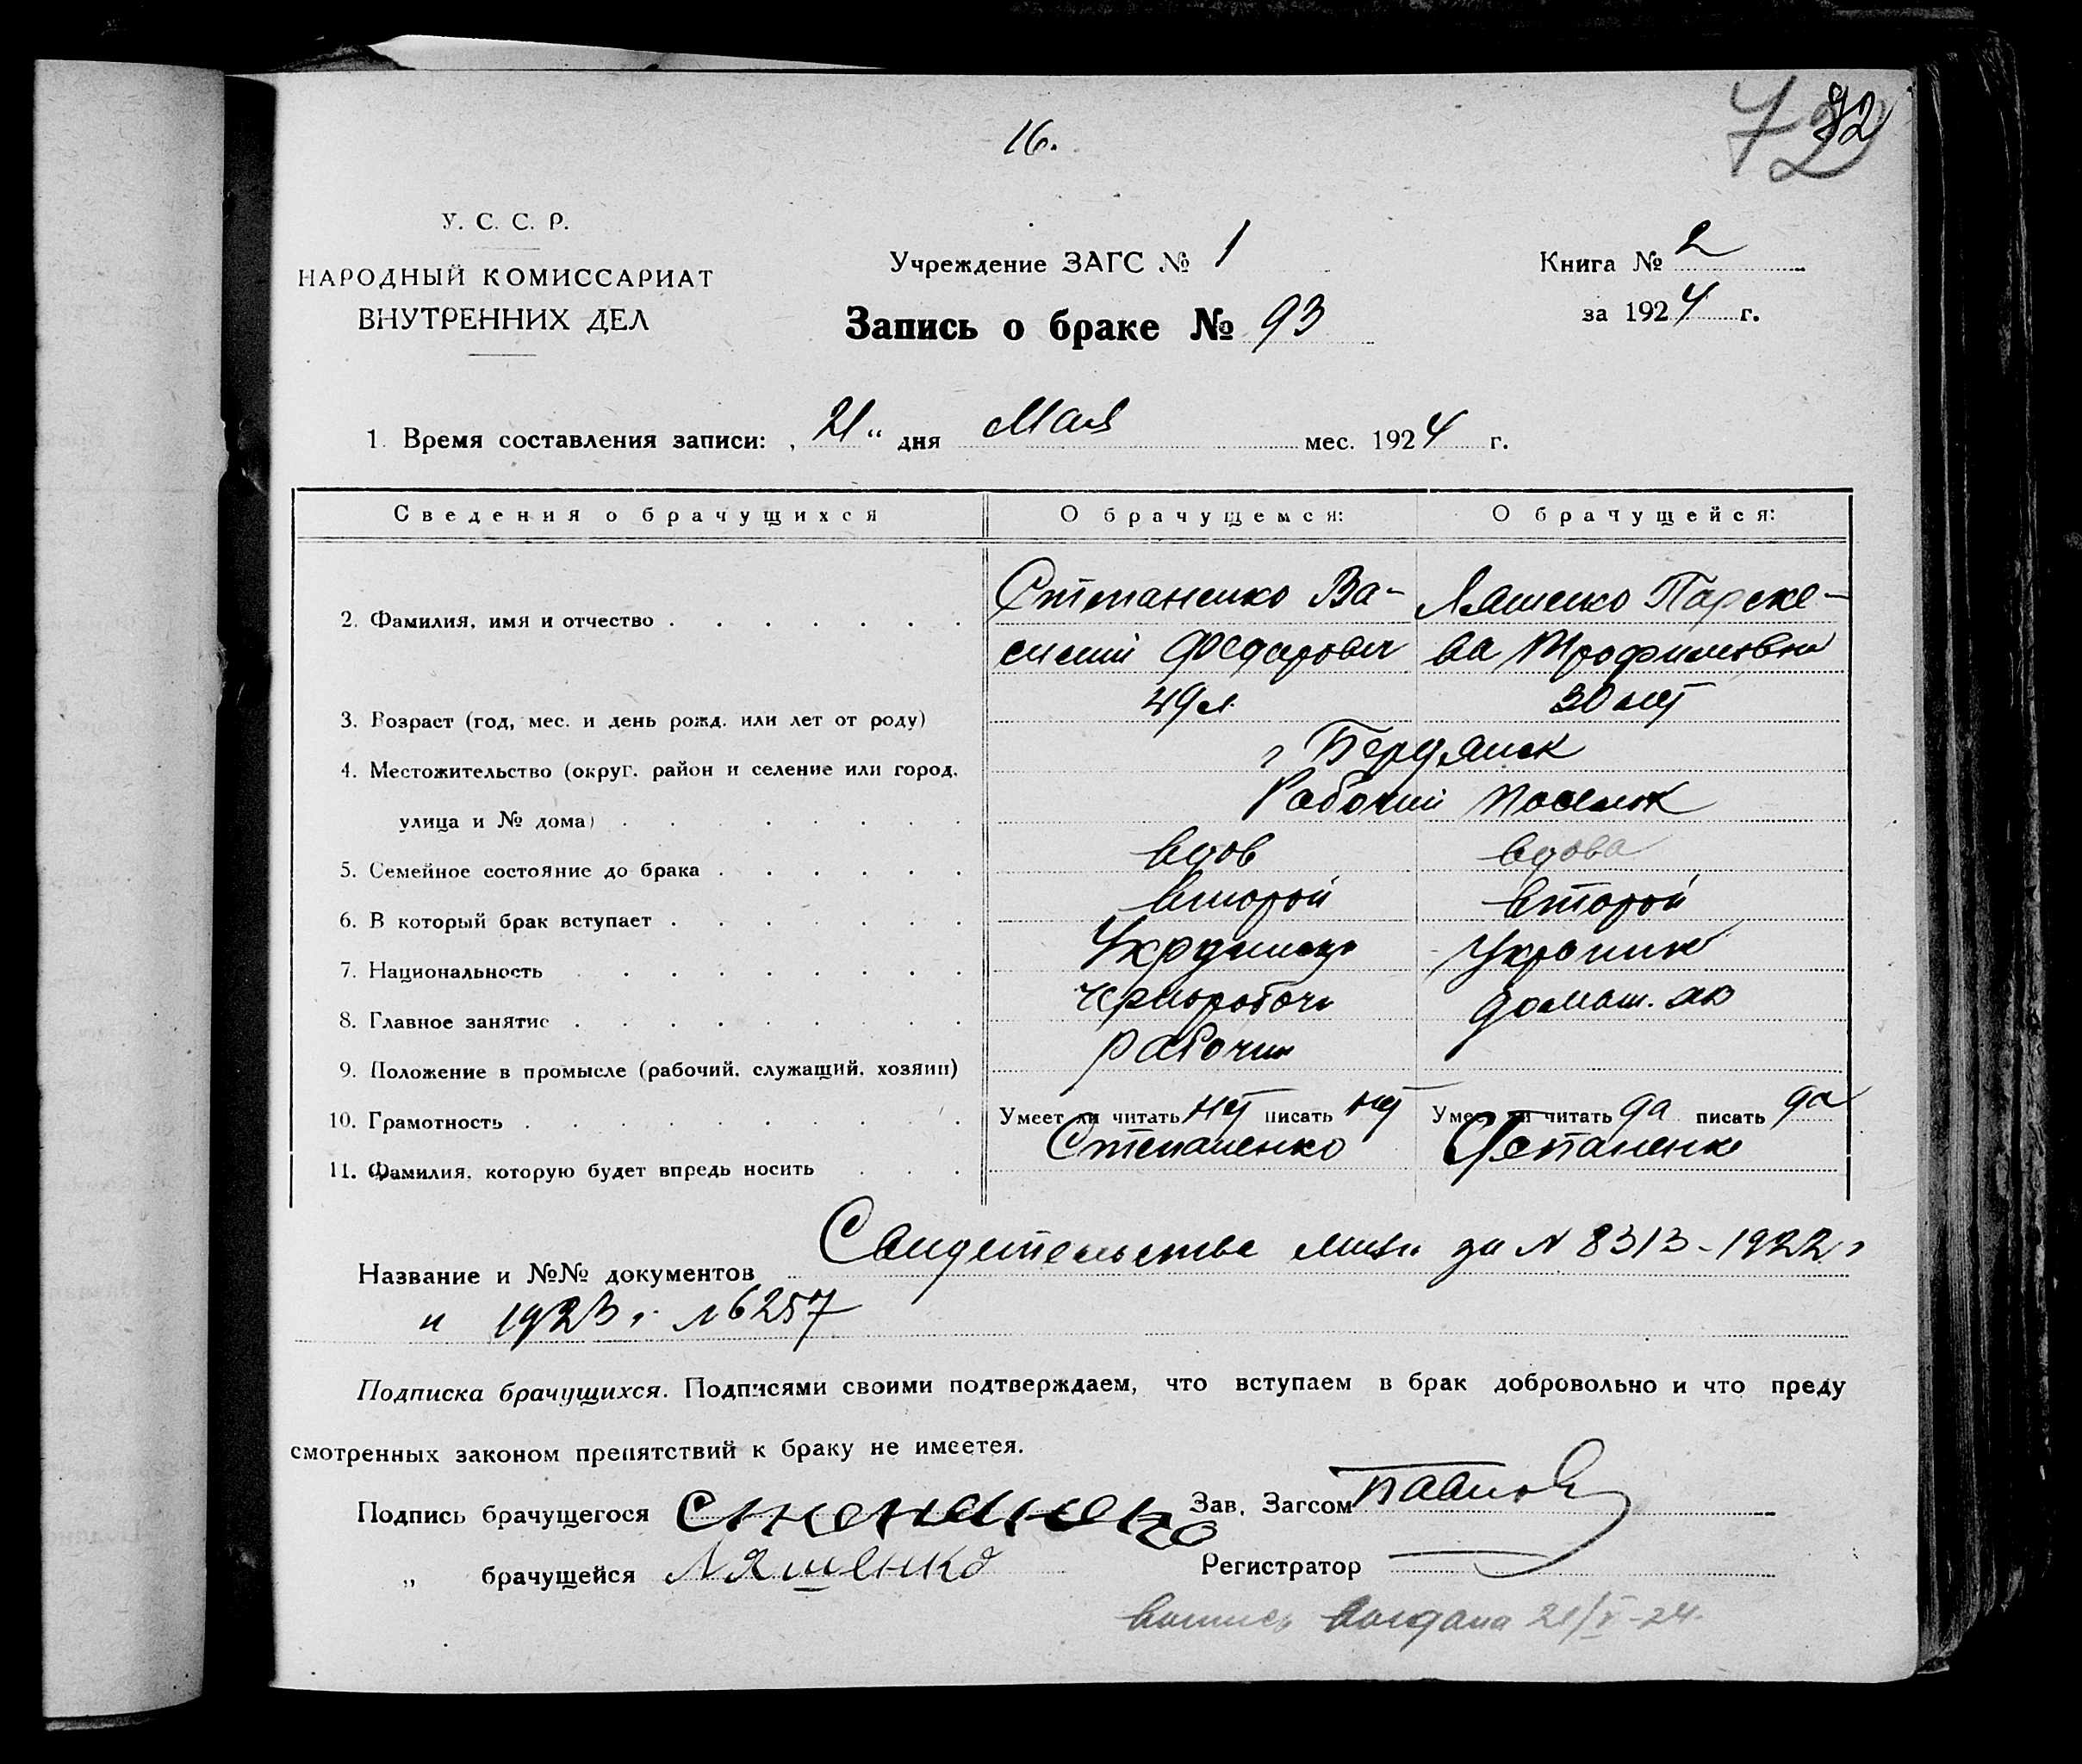 16.
72 72
У. С. С. Р.
НАРОДНЫЙ КОМИССАРИАТ
ВНУТРЕННИХ ДЕЛ
Учреждение ЗАГС № 1
Запись о браке № 93
Книга № 2
за 1924 г.
1. Время составления записи: „ 21 “ дня Мая мес. 1924 г.
Сведения о брачущихся О брачущемся: О брачущейся:
2. Фамилия, имя и отчество Степаненко Ва- Ляшенко Параске-
силий Федорович ва Трофимовна
3. Возраст (год, мес. и день рожд. или лет от роду) 49 л. 30 лет
4. Местожительство (округ, район и селение или город, г Бердянск
улица и № дома) Рабочий поселок
5. Семейное состояние до брака вдов вдова
6. В который брак вступает второй второй
7. Национальность Украинец Украинк
8. Главное занятие чернорабочи домаш. хоз
9. Положение в промысле (рабочий, служащий, хозяин) рабочий
10. Грамотность Умеет ли читать нет писать нет Умеет ли читать да писать да
11. Фамилия, которую будет впредь носить Степаненко Степаненко
Название и №№ документов Свидетельства за № 8313 - 1922 г
и 1923 г. № 6257
Подписка брачущихся. Подписями своими подтверждаем, что вступаем в брак добровольно и что преду
смотренных законом препятствий к браку не имеется.
Подпись брачущегося Степаненко Зав. Загсом Павлов
„ брачущейся Ляшенко Регистратор
выдана 21/V-24.